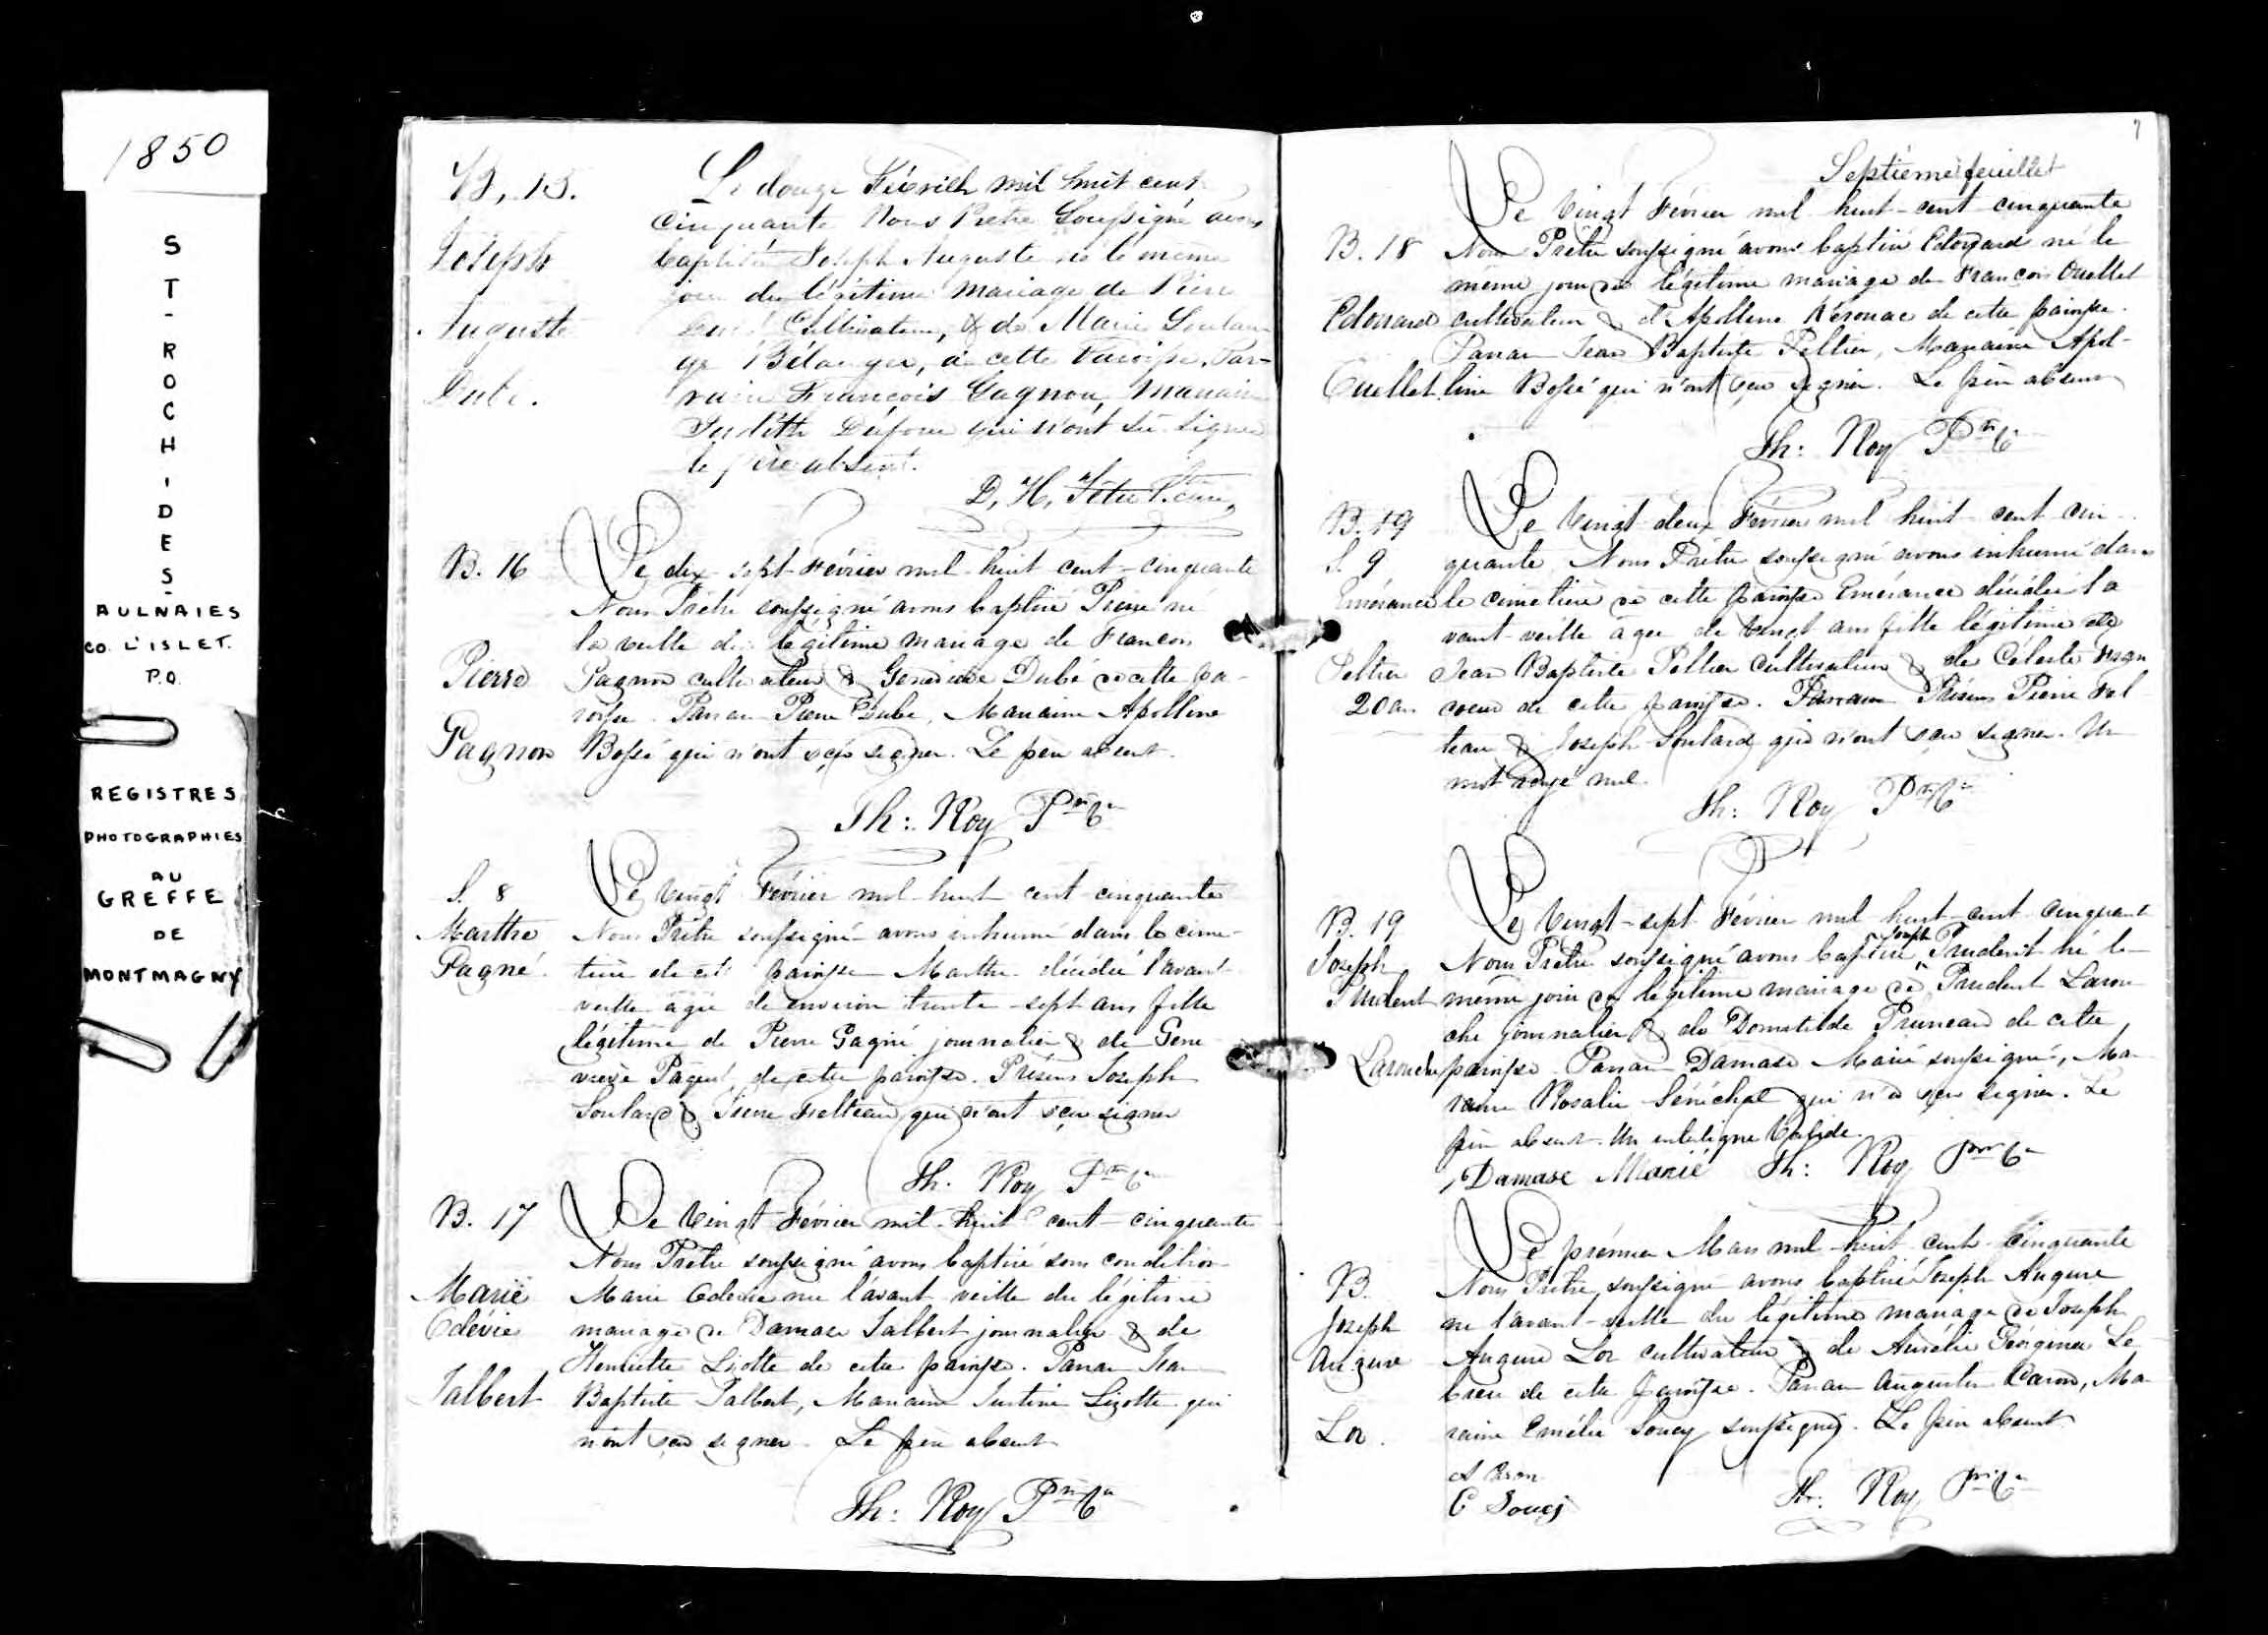 1850
ST-ROCH-DES-
AULNAIES
CO. L'ISLET.
P.Q.
REGISTRES
PHOTOGRAPHIES
AU
GREFFE
DE
MONTMAGNY
B, 15.
Joseph
Auguste
Dubé.
Le douze Février mil huit cent
cinquante Nous Prêtre Soussigné avons
baptisé Joseph Auguste né le même
jour du légitime mariage de Pierre
Dubé Cultivateur, & de Marie Soulan-
ge Bélanger, de cette Paroisse, Par-
rain François Gagnon, Marraine
Judith Dufour qui n'ont su signer
le père absent.
D, H, Têtu Ptre Curé,
B. 16
Pierre
Gagnon
Le dix-sept Février mil-huit cent-cinquante
Nous Prêtre soussigné avons baptisé Pierre né
la veille du légitime mariage de François
Gagnon cultivateur & Geneviève Dubé de cette pa-
roisse. Parrain Pierre Dubé, Marraine Apolline
Bossé qui n'ont sçu signer. Le père absent.
Th: Roy Ptre Vre
S. 8
Marthe
Gagné
Le vingt Février mil-huit cent-cinquante
Nous Prêtre soussigné avons inhumé dans le cime-
tière de cette paroisse Marthe décédée l'avant
veille âgée de environ trente-sept ans fille
légitime de Pierre Gagné journalier & de Gene
viève Paquet, de cette paroisse. Présens Joseph
Soulard & Pierre Felteau qui n'ont sçu signer
Th. Roy Ptre Vre
B. 17
Marie
Odevie
Talbert
Le Vingt Février mil-huit cent-cinquante
Nous Prêtre soussigné avons baptisé sous condition
Marie Odevie née l'avant veille du légitime
mariage de Damase Talbert journalier & de
Henriette Lizotte de cette paroisse. Parrain Jean
Baptiste Talbert, Marraine Justine Lizotte qui
n'ont sçu signer. Le père absent
Th: Roy Ptre Vre
7
Septième feuillet
B. 18
Edouard
Ouellet
Le Vingt Février mil huit-cent-cinquante
Nous Prêtre soussigné avons baptisé Edouard né le
même jour du légitime mariage de François Ouellet
cultivateur & d'Apolline Kérouac de cette paroisse.
Parrain Jean Baptiste Peltier, Marraine Apol-
line Bossé qui n'ont sçu signer. Le père absent
Th: Roy Ptre Vre
B. 19
S. 9
Emérance
Peltier
20 ans
Le Vingt deux Février mil huit cent cin-
quante Nous Prêtre soussigné avons inhumé dans
le cimetière de cette paroisse Emérance décédée l'a
vant-veille âgée de vingt ans fille légitime de
Jean Baptiste Peltier Cultivateur & de Céleste Fran
coeur de cette paroisse. Parrain Présens Pierre Fel
teau & Joseph Soulard qui n'ont sçu signer. Un
mot rayé nul.
Th: Roy Ptre Vre
B. 19
Joseph
Prudent
Larouche
Le Vingt-sept Février mil huit-cent cinquante
Joseph
Nous Prêtre soussigné avons baptisé Prudent né le
même jour du légitime mariage de Prudent Larou
che journalier & de Domatilde Pruneau de cette
paroisse. Parrain Damase Marié soussigné, Ma-
raine Rosalie Sénéchal qui n'a sçu signer. Le
père absent. Un interligne valide.
Damase Marié Th: Roy Ptre Vre
B.
Joseph
Augure
Lor.
Le prémier Mars mil-huit cent cinquante
Nous Prêtre soussigné avons baptisé Joseph Augure
né l'avant-veille du légitime mariage de Joseph
Augure Lor cultivateur & de Aurélie Géorgina Le
breu de cette paroisse. Parrain Augustin Caron, Ma
raine Emélie Soucy soussignés. Le père absent
A Caron
E Soucy
Th: Roy Ptre Vre